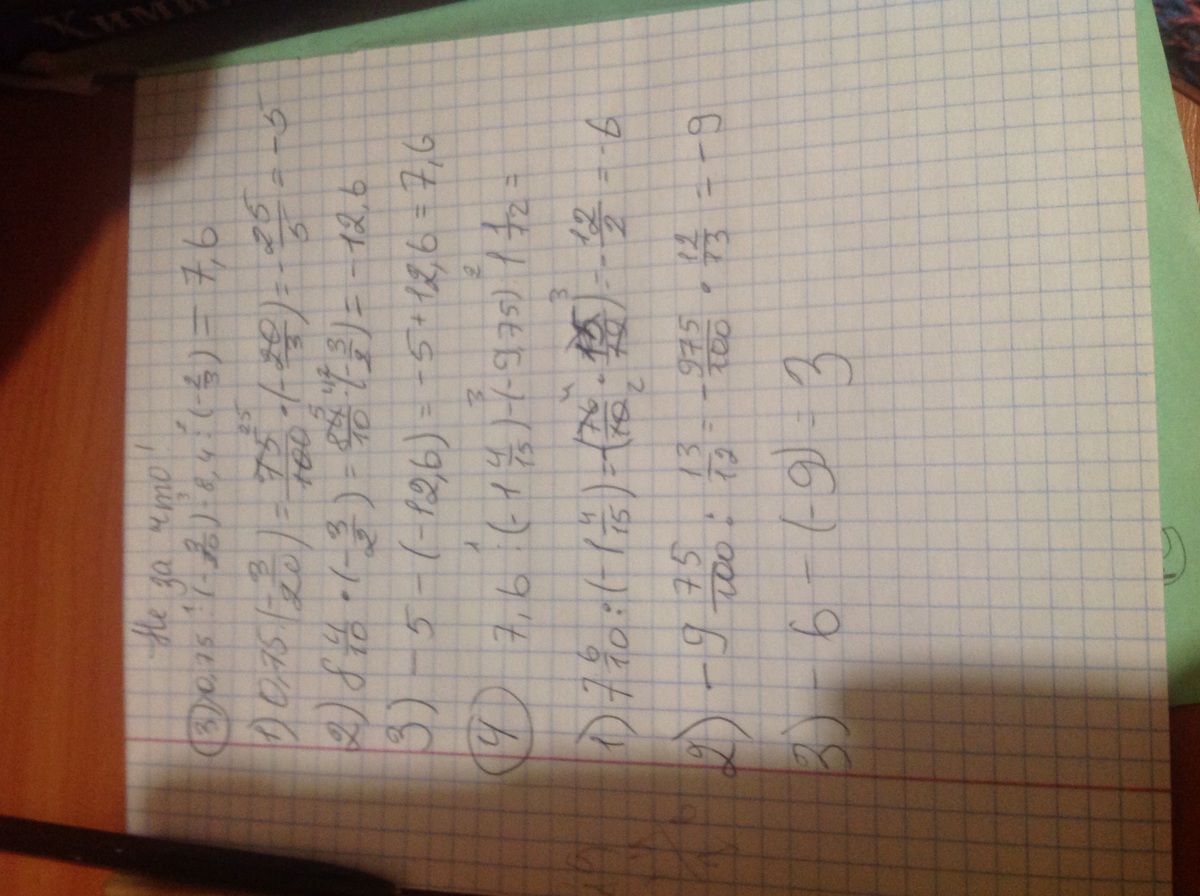 Не за что!
③ 0,75 : (-3/20) - 8,4 : (-2/3) = 7,6
1) 0,75 : (-3/20) = 75/100 · (-20/3) = -25/5 = -5
2) 8 4/10 · (-3/2) = 84/10 · (-3/2) = -12,6
3) -5 - (-12,6) = -5 + 12,6 = 7,6
④ 7,6 : (-1 4/15) - (-9,75) : 1 1/12 =
1) 7 6/10 : (-1 4/15) = (76/10 · 15/19) = -12/2 = -6
2) -9 75/100 : 13/12 = -975/100 · 12/13 = -9
3) -6 - (-9) = 3
Хими